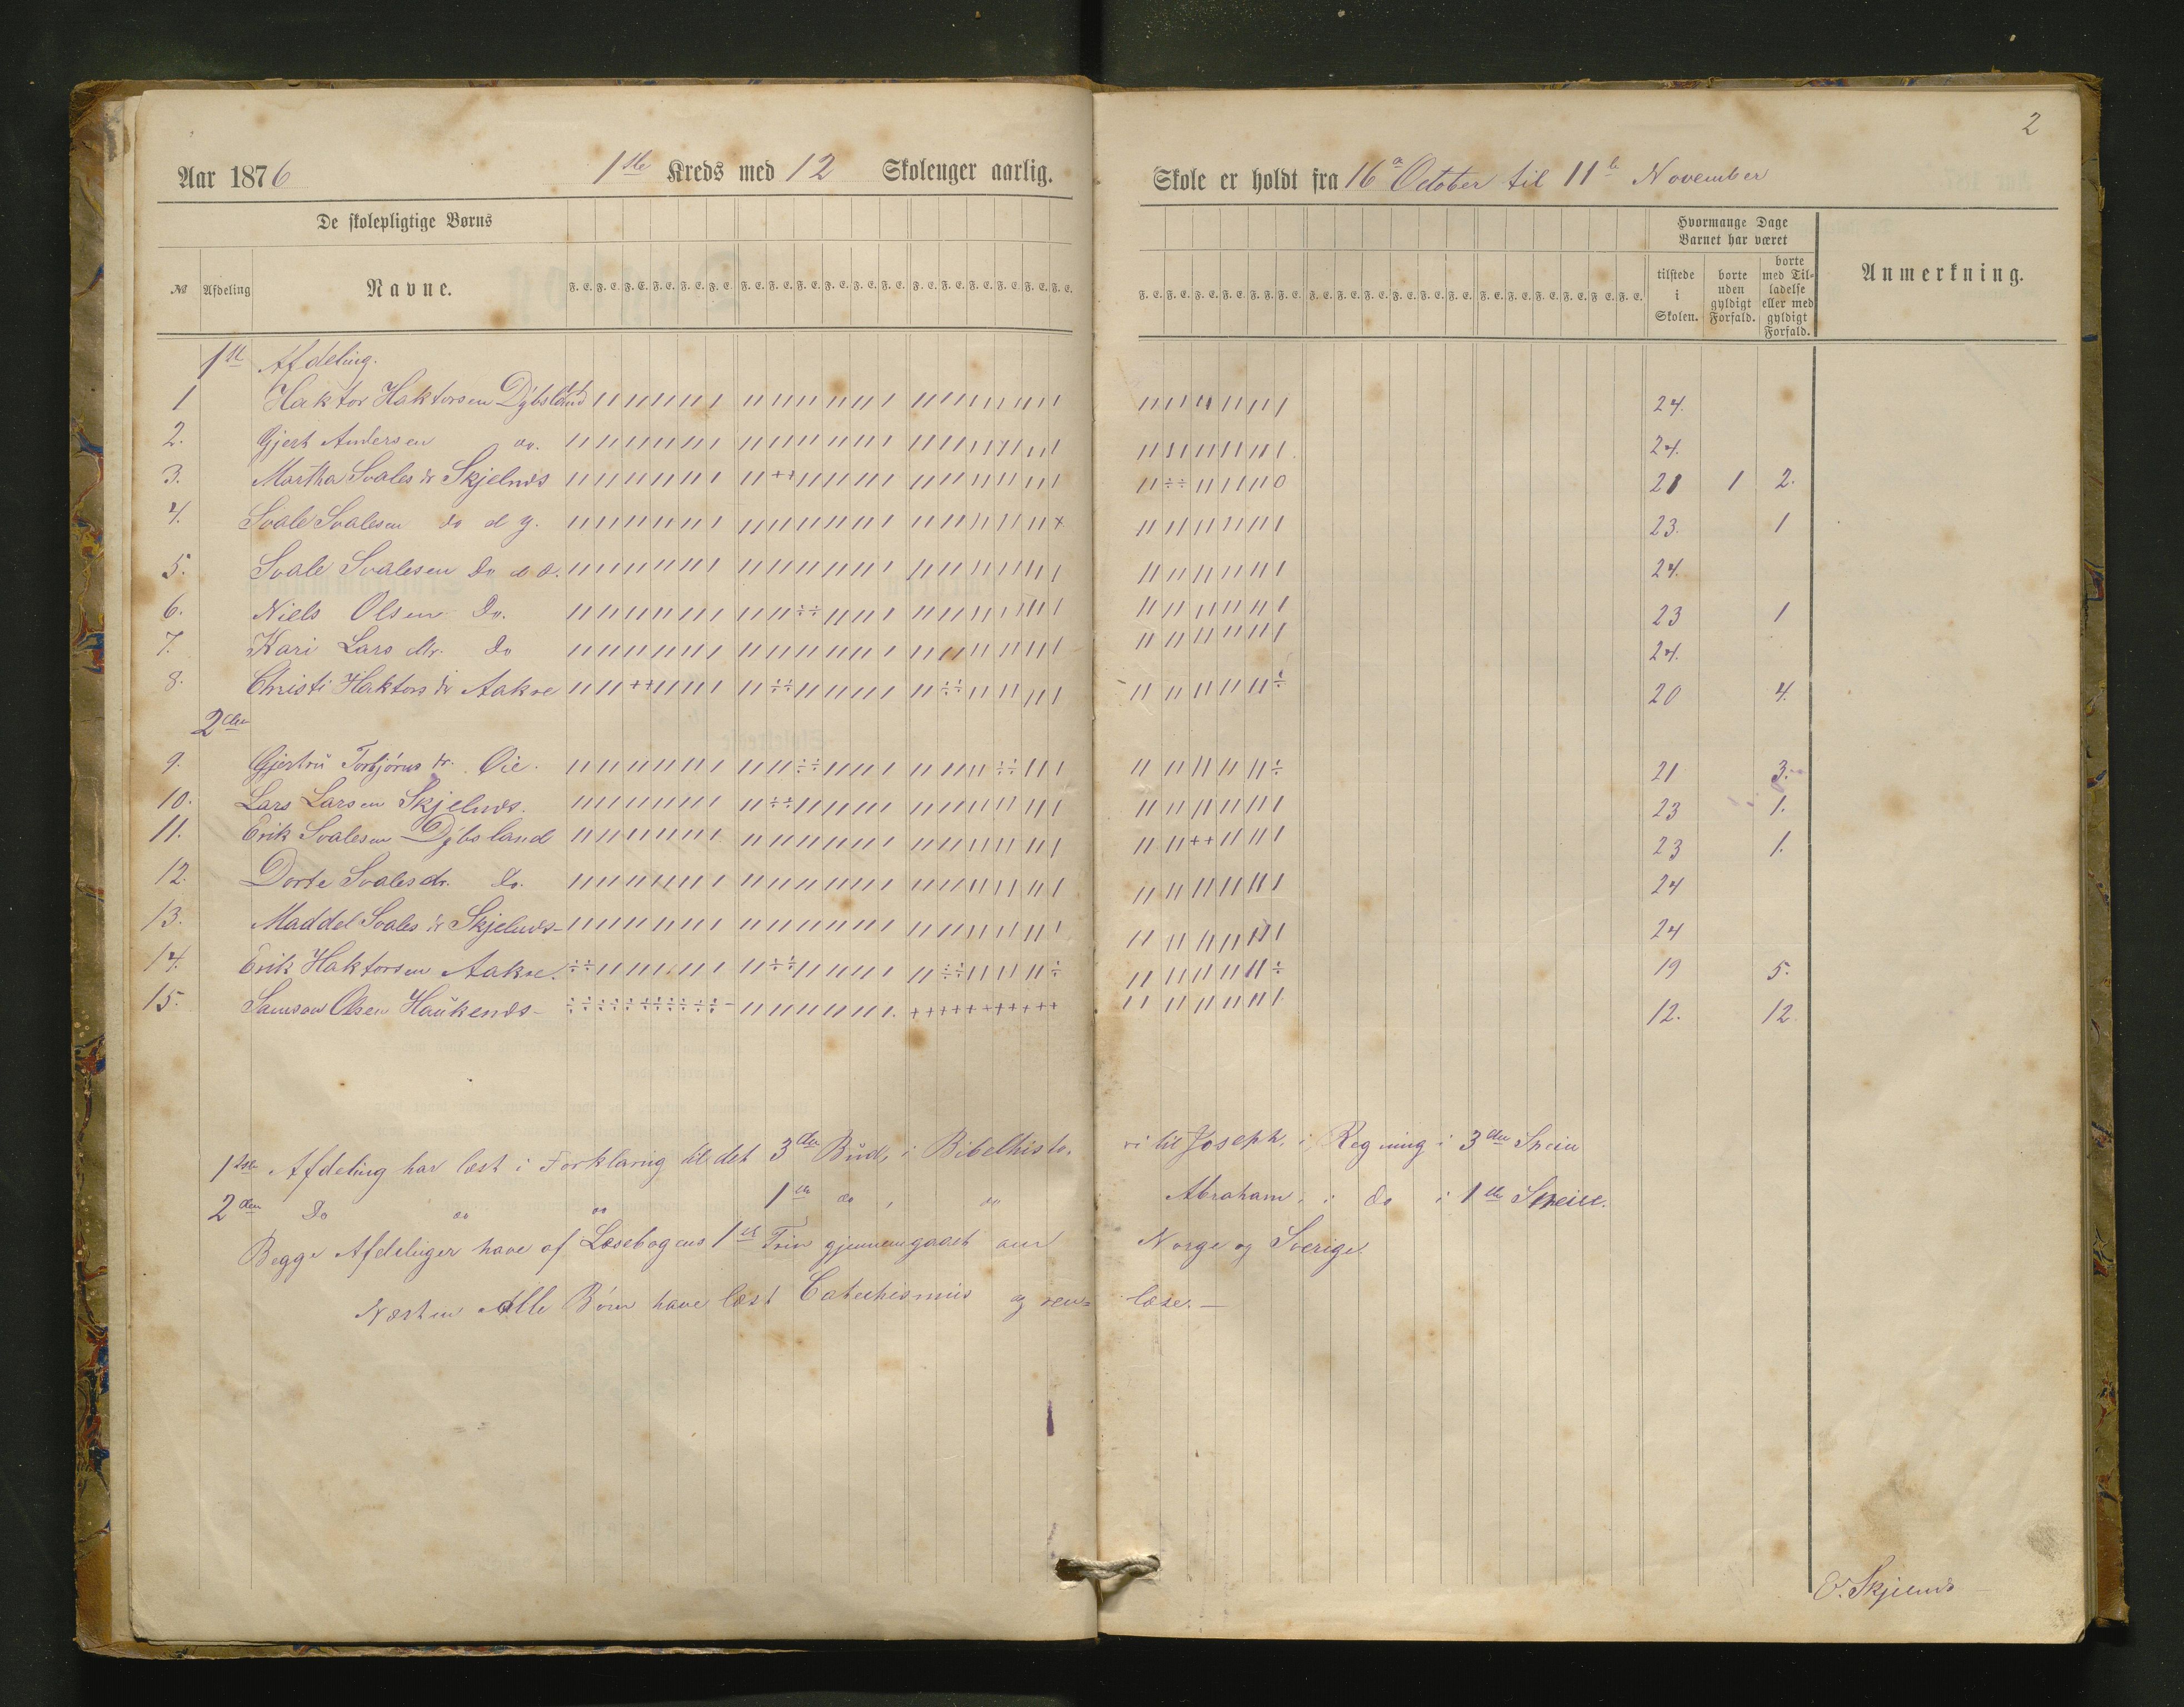 2
Aar 1876 1ste Kreds med 12 Skoleuger aarlig. Skole er holdt fra 16de October til 11te November
De skolepligtige Børns
Hvormange Dage Barnet har været
No Afdeling Navne. F. E. F. E. F. E. F. E. F. E. F. E. tilstede i Skolen. borte uden gyldigt Forfald. borte med Tilladelse eller med gyldigt Forfald. Anmerkning.
1ste Afdeling.
1 Haktor Haktorsen Dybsland 24.
2. Gjert Andersen do. 24.
3. Martha Svales dr Skjelnes 21 1 2.
4. Svale Svalesen do d y. 23. 1
5. Svale Svalesen Do d æ. 24.
6. Niels Olsen Do. 23 1
7. Kari Lars dtr. Do 24.
8. Christi Haktors dr Aakre 20 4.
2den
9. Gjertrů Torbjörns dr. Øie. 21 3.
10. Lars Larsen Skjelnes. 23 1.
11. Erik Svalesen Dybsland 23 1.
12. Dorte Svalesdr. Do. 24
13. Maddel Svales dr Skjelnes 24
14. Erik Haktorsen Aakre. 19 5.
15. Samson Olsen Haukenes 12. 12.
1ste Afdeling har læst i Forklaring til det 3die Bud, i Bibelhistori til Joseph, i Regning i 3die Speice
2den Do do do 1ste do, do Abraham, i do i 1ste Speice.
Begge Afdelinger have af Læsebogens 1ste Trin gjennemgaaet om Norge og Sverige.
Næsten Alle Börn have læst Catechismus og ren= læse.
E. Skjelnes